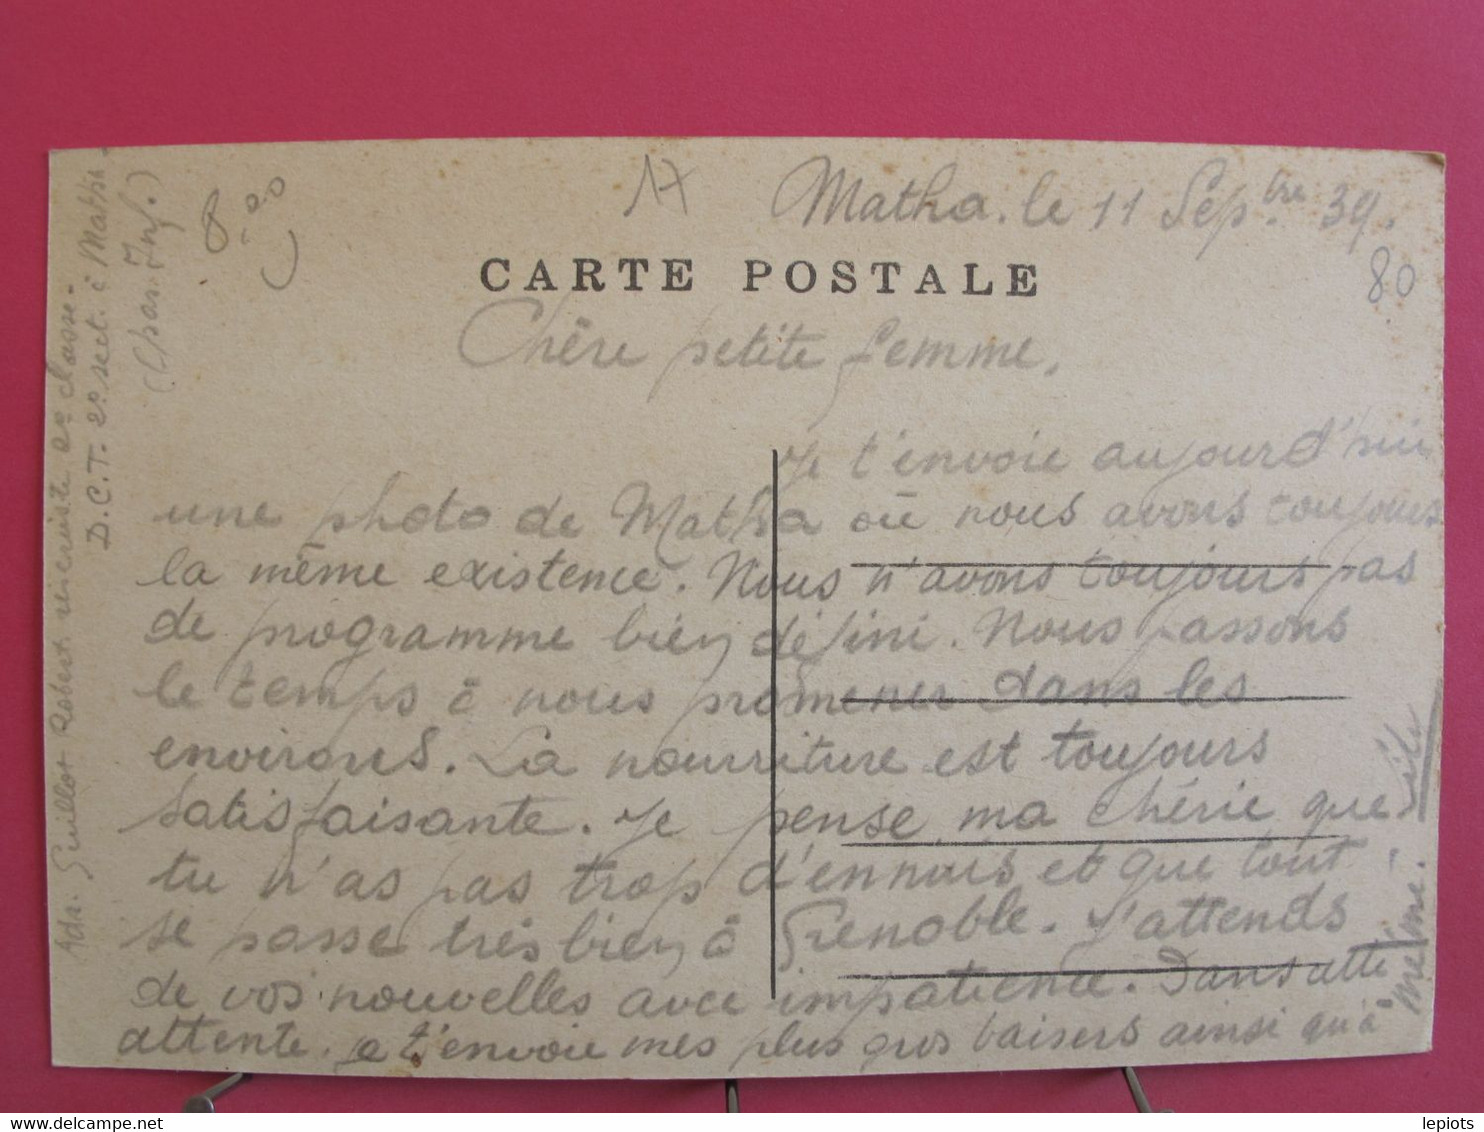 17
Matha. le 11 Septbre 39.
8.00
80
CARTE POSTALE
Chère petite femme.
Je t'envoie aujourd'hui
une photo de Matha où nous avons toujours
la même existence. Nous n'avons toujours pas
de programme bien défini. Nous passons
le temps à nous promener dans les
environs. La nourriture est toujours
satisfaisante. Je pense ma chérie que
tu n'as pas trop d'ennuis et que tout
se passe très bien à Grenoble. J'attends
de vos nouvelles avec impatience. Dans cette
attente. Je t'envoie mes plus gros baisers ainsi qu'à
mémé.
Adr. Guillot Robert 2e classe-
D.C.T. 2e sect. à Matha-
(Char. Inf.)
lepiots